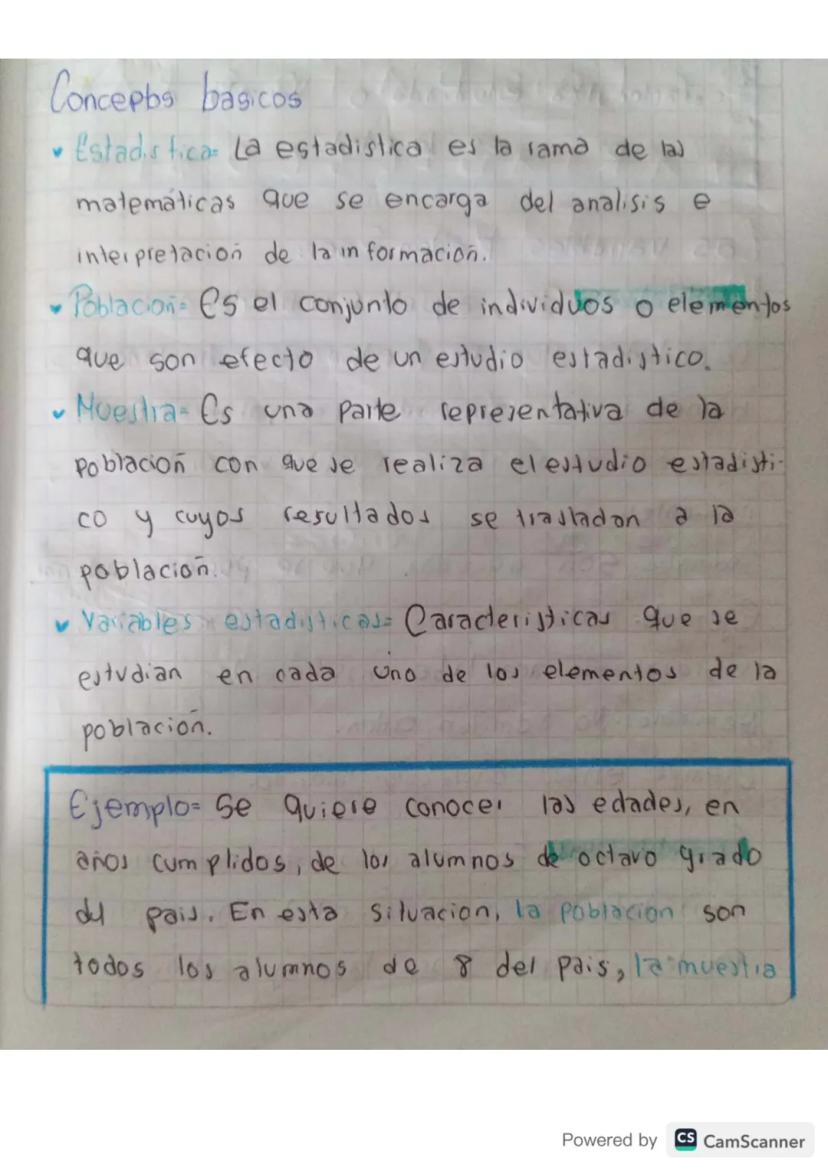 Conceptos basicos
Estadistica= La estadistica es la rama de las
matemáticas que se encarga del analisis e
interpretación de la información.
Población= Es el conjunto de individuos o elementos
que son efecto de un estudio estadistico.
Muestra= Es una parte representativa de la
población con que se realiza el estudio estadisti-
co y cuyos resultados se trasladan a la
población.
Variables estadisticas= Caracteristicas que se
estudian en cada uno de los elementos de la
población.
Ejemplo= Se quiere conocer las edades, en
años cumplidos, de los alumnos de octavo grado
del pais. En esta situacion, la poblacion son
todos los alumnos de 8 del pais, la muestra
Powered by CS CamScanner